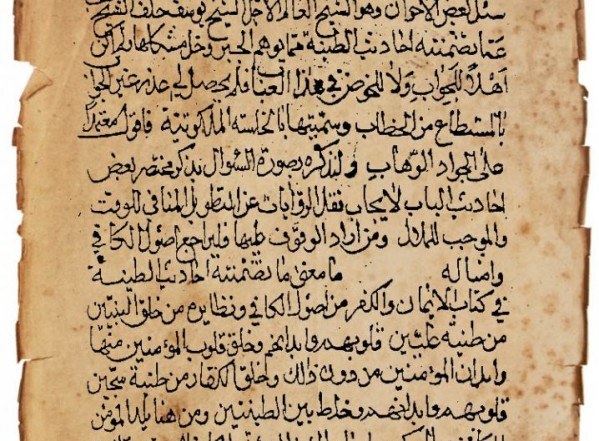 سئل بعض الاخوان وهو الشيخ العالم الاجل الشيخ يوسف خلف الشيخ
عما تضمنته احاديث الطينة مما يوهم الجبر وحل مشكلها ولم اكن
اهلا للجواب ولا للخوض في هذا العباب فلم يحصل لي عذر عن الجواب
بالمستطاع من الخطاب وسميتها بالخلسة الملكوتية فاقول معتمدا
على الجواد الوهاب ولنذكره بصورة السؤال بذكر مختصر بعض
احاديث الباب لايجاب نقل الروايات عن التطويل المنافي للوقت
والموجب للملال ومن اراد الوقوف عليها فليراجع اصول الكافي
وامثاله ما معنى ما تضمنته احاديث الطينة
في كتاب الايمان والكفر من اصول الكافي ونظايره من خلق النبيين
من طينة عليين قلوبهم وابدانهم وخلق قلوب المؤمنين منها
وابدان المؤمنين من دون ذلك وخلق الكفار من طينة سجين
قلوبهم وابدانهم وخلط بين الطينتين ومن هنا يلد المؤمن